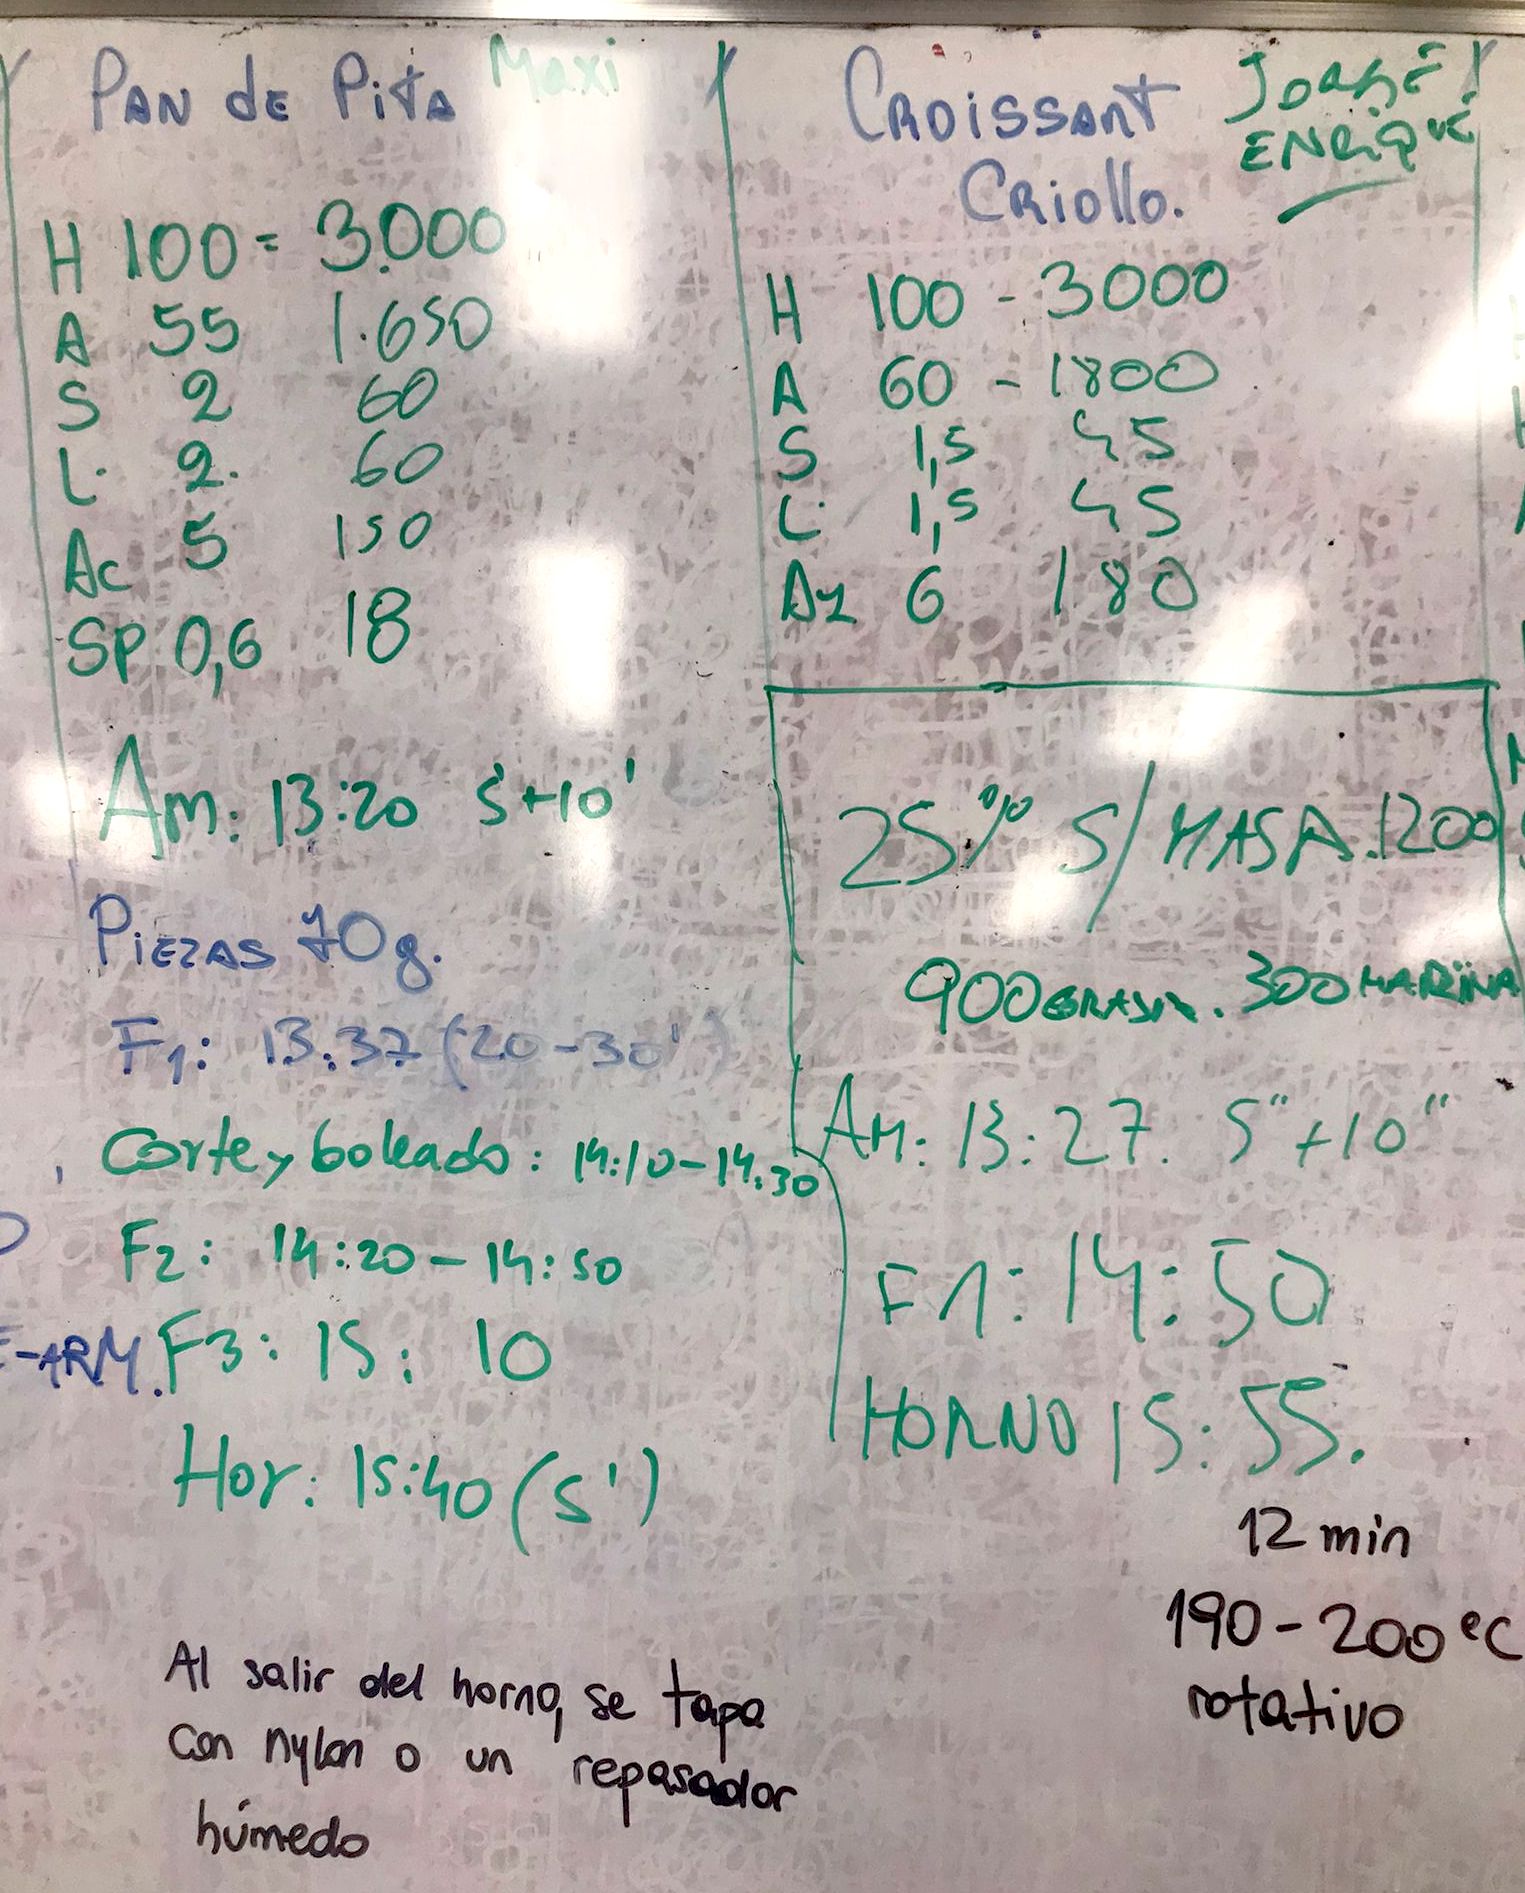 PAN de PitA Maxi
H 100 = 3.000
A 55 1.650
S 2 60
L. 2. 60
Ac 5 150
SP 0,6 18
Am: 13:20 5'+10'
PIEZAS 70g.
F1: 13:37 (20-30')
Corte y boleado: 14:10-14:30
F2: 14:20-14:50
E-ARM. F3: 15:10
Hor: 15:40 (5')
Al salir del horno, se tapa
con nylon o un repasador
húmedo
CROISSANT
ENRiQUE
CRiollo.
H 100 - 3000
A 60 - 1800
S 1,5 45
L. 1,5 45
Az 6 180
25% S/MASA.1200
900 GRASA. 300 HARINA
AM: 13:27. 5"+10"
F1: 14:50
HORNO 15:55.
12 min
190-200°C
rotativo